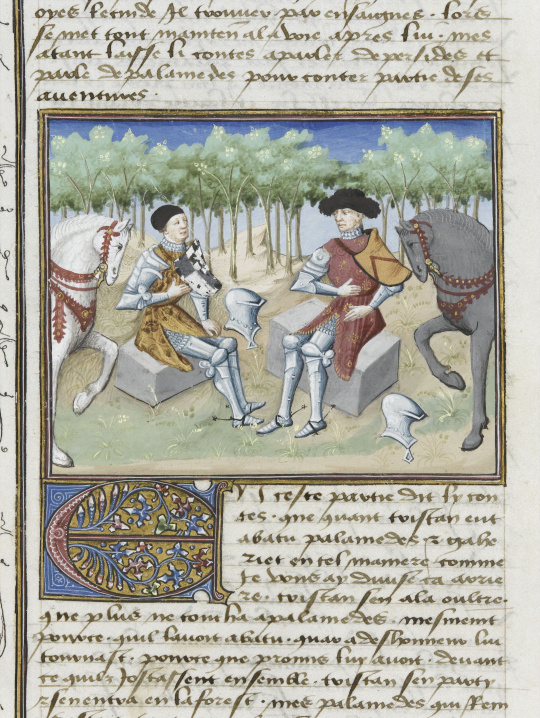 oyes le cri de Il trouver par ensaignes . lors
se met tout mainten ala voie apres lui . mes
atant laisse li contes aparler de persides et
parle de palamedes pour conter partie de ses
auentures .
En ceste partie dit ly con
tes . que quant tristan eut
abatu palamedes z gahe
riet en tel maniere comme
Je vous ay deuise ca arrie
re . tristan sen ala oultre .
que plus ne toucha apalamedes . mesment
pource . quil lauoit abatu . quar a deshonneur lui
tournast . pource que promis luy auoit . deuant
ce quilz Jostassent ensemble . tristan sen party
z sen entra en la forest . mes palamedes qui